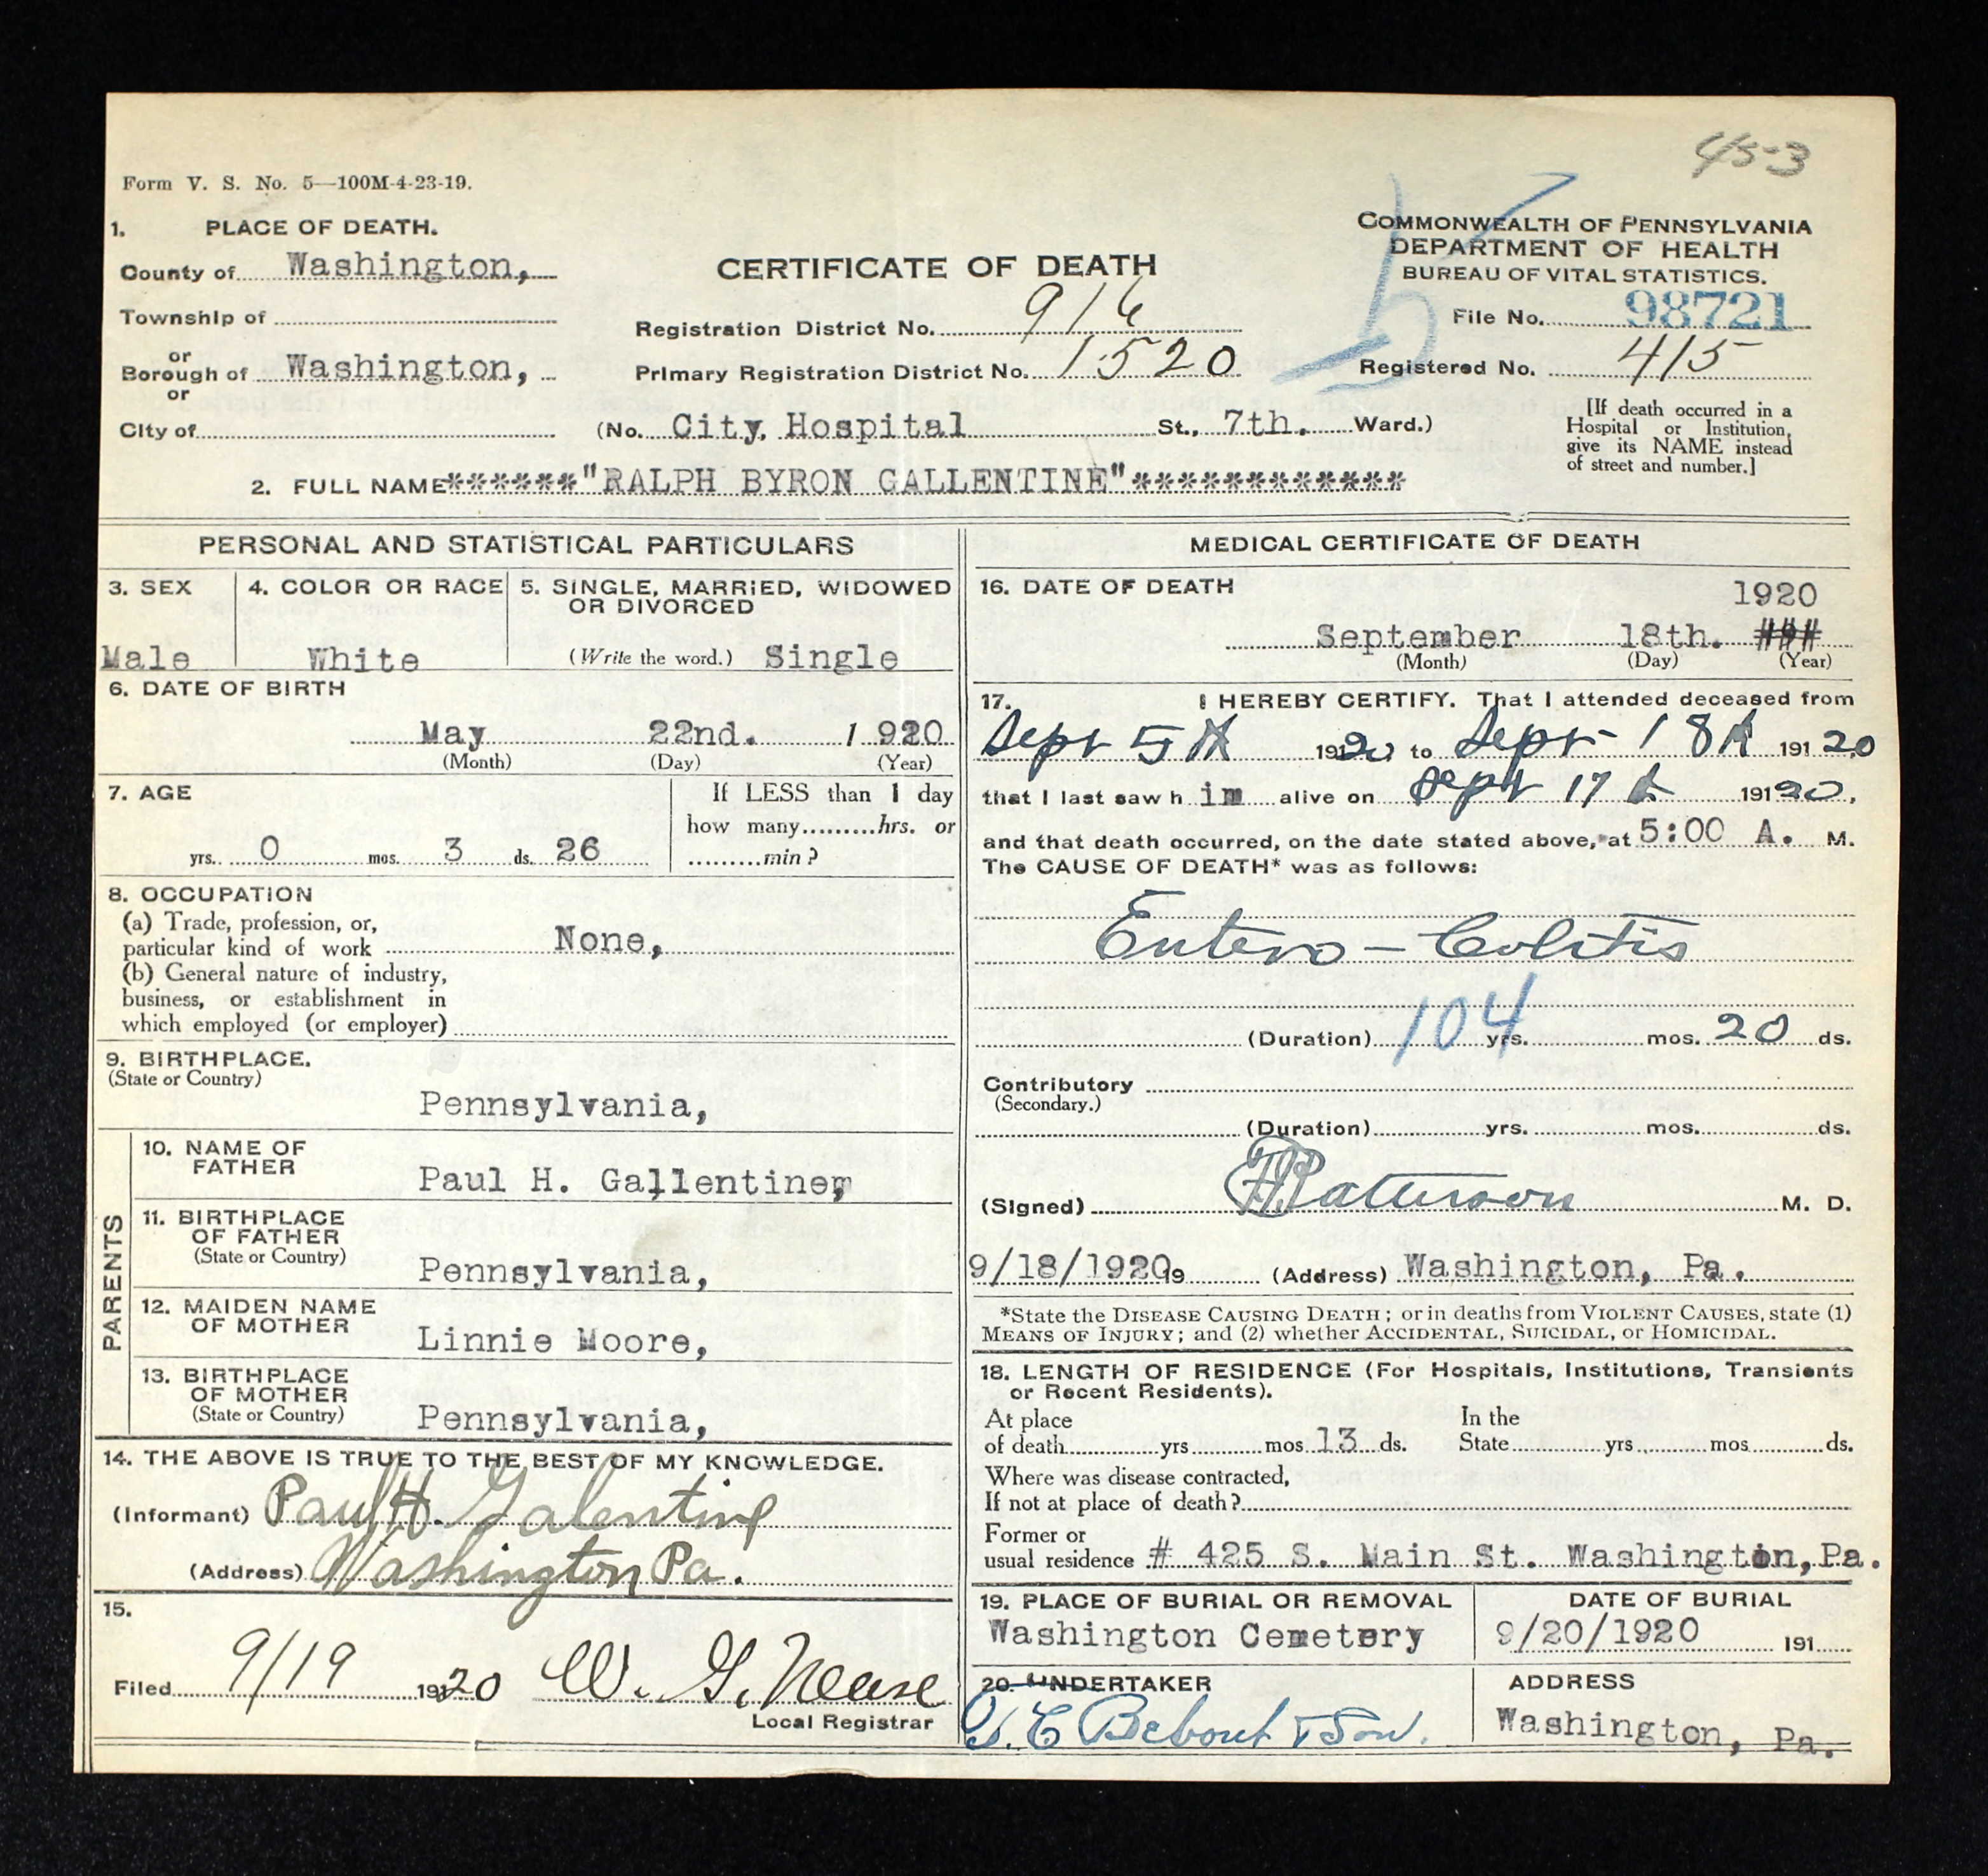 45-3
Form V. S. No. 5—100M-4-23-19.
1. PLACE OF DEATH.
County of Washington,
Township of
or
Borough of Washington,
or
City of
CERTIFICATE OF DEATH
Registration District No. 916
Primary Registration District No. 1520
(No. City. Hospital St., 7th. Ward.)
COMMONWEALTH OF PENNSYLVANIA
DEPARTMENT OF HEALTH
BUREAU OF VITAL STATISTICS.
File No. 98721
Registered No. 415
[If death occurred in a
Hospital or Institution,
give its NAME instead
of street and number.]
2. FULL NAME ******"RALPH BYRON GALLENTINE"************
PERSONAL AND STATISTICAL PARTICULARS
3. SEX
Male
4. COLOR OR RACE
White
5. SINGLE, MARRIED, WIDOWED
OR DIVORCED
(Write the word.) Single
6. DATE OF BIRTH
May 22nd. 1 920
(Month) (Day) (Year)
7. AGE
yrs. 0 mos. 3 ds. 26
If LESS than 1 day
how many.........hrs. or
.........min ?
8. OCCUPATION
(a) Trade, profession, or,
particular kind of work None,
(b) General nature of industry,
business, or establishment in
which employed (or employer)
9. BIRTHPLACE.
(State or Country)
Pennsylvania,
PARENTS
10. NAME OF
FATHER
Paul H. Gallentine,
11. BIRTHPLACE
OF FATHER
(State or Country)
Pennsylvania,
12. MAIDEN NAME
OF MOTHER
Linnie Moore,
13. BIRTHPLACE
OF MOTHER
(State or Country)
Pennsylvania,
14. THE ABOVE IS TRUE TO THE BEST OF MY KNOWLEDGE.
(Informant) Paul H. Galentine
(Address) Washington Pa.
15.
Filed 9/19 1920 W. G. Nease
Local Registrar
MEDICAL CERTIFICATE OF DEATH
16. DATE OF DEATH
1920
September 18th.
(Month) (Day) (Year)
17. I HEREBY CERTIFY. That I attended deceased from
Sept 5th 1920 to Sept 18th 19120
that I last saw h im alive on Sept 17th 19120,
and that death occurred, on the date stated above, at 5:00 A. M.
The CAUSE OF DEATH* was as follows:
Entero-Colitis
104
(Duration) yrs. mos. 20 ds.
Contributory
(Secondary.)
(Duration) yrs. mos. ds.
(Signed) Patterson M. D.
9/18/1920 19 (Address) Washington, Pa.
*State the DISEASE CAUSING DEATH; or in deaths from VIOLENT CAUSES, state (1)
MEANS OF INJURY; and (2) whether ACCIDENTAL, SUICIDAL, or HOMICIDAL.
18. LENGTH OF RESIDENCE (For Hospitals, Institutions, Transients
or Recent Residents).
At place
of death yrs mos 13 ds.
In the
State yrs. mos ds.
Where was disease contracted,
If not at place of death?
Former or
usual residence # 425 S. Main St. Washington, Pa.
19. PLACE OF BURIAL OR REMOVAL
Washington Cemetery
DATE OF BURIAL
9/20/1920 191
20. UNDERTAKER
T. C Bebout & Son.
ADDRESS
Washington, Pa.